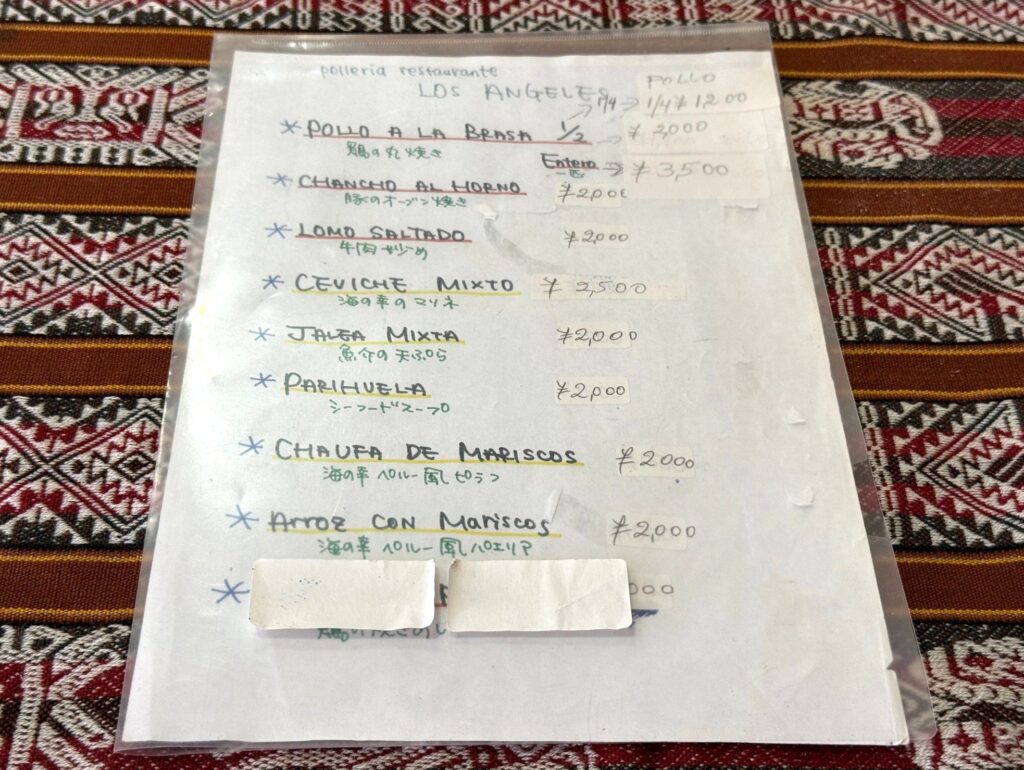 polleria restaurante
LOS ANGELES
POLLO
1/4 → 1/4 ¥1,200
* POLLO A LA BRASA 1/2 → ¥2,000
鶏の丸焼き
Entero 一匹 → ¥3,500
* CHANCHO AL HORNO ¥2,000
豚のオーブン焼き
* LOMO SALTADO ¥2,000
牛肉炒め
* CEVICHE MIXTO ¥2,500
海の幸のマリネ
* JALEA MIXTA ¥2,000
魚介の天ぷら
* PARIHUELA ¥2,000
シーフードスープ
* CHAUFA DE MARISCOS ¥2000
海の幸ペルー風ピラフ
* Arroz con Mariscos ¥2,000
海の幸ペルー風パエリア
* 000